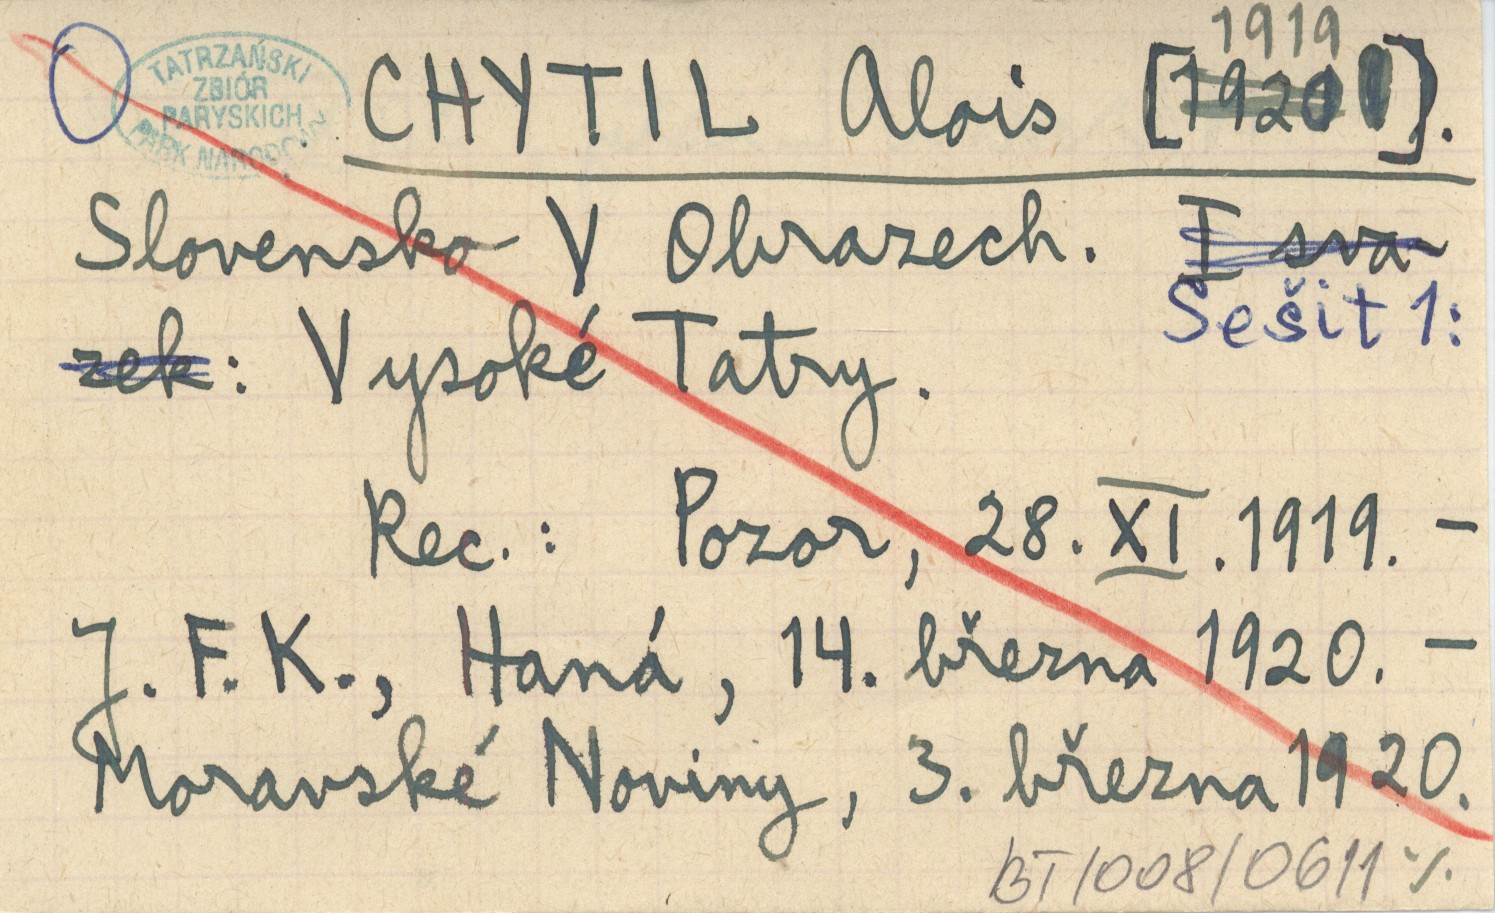 1919
TATRZAŃSKI
ZBIÓR
PARYSKICH
PARK NARODOWY
CHYTIL Alois [1920].
Slovensko V Obrazech. I sva-
Sešit 1:
zek: Vysoké Tatry.
Rec.: Pozor, 28. XI. 1919. –
J. F. K., Haná, 14. března 1920. –
Moravské Noviny, 3. března 1920.
BT/008/0611 ٪